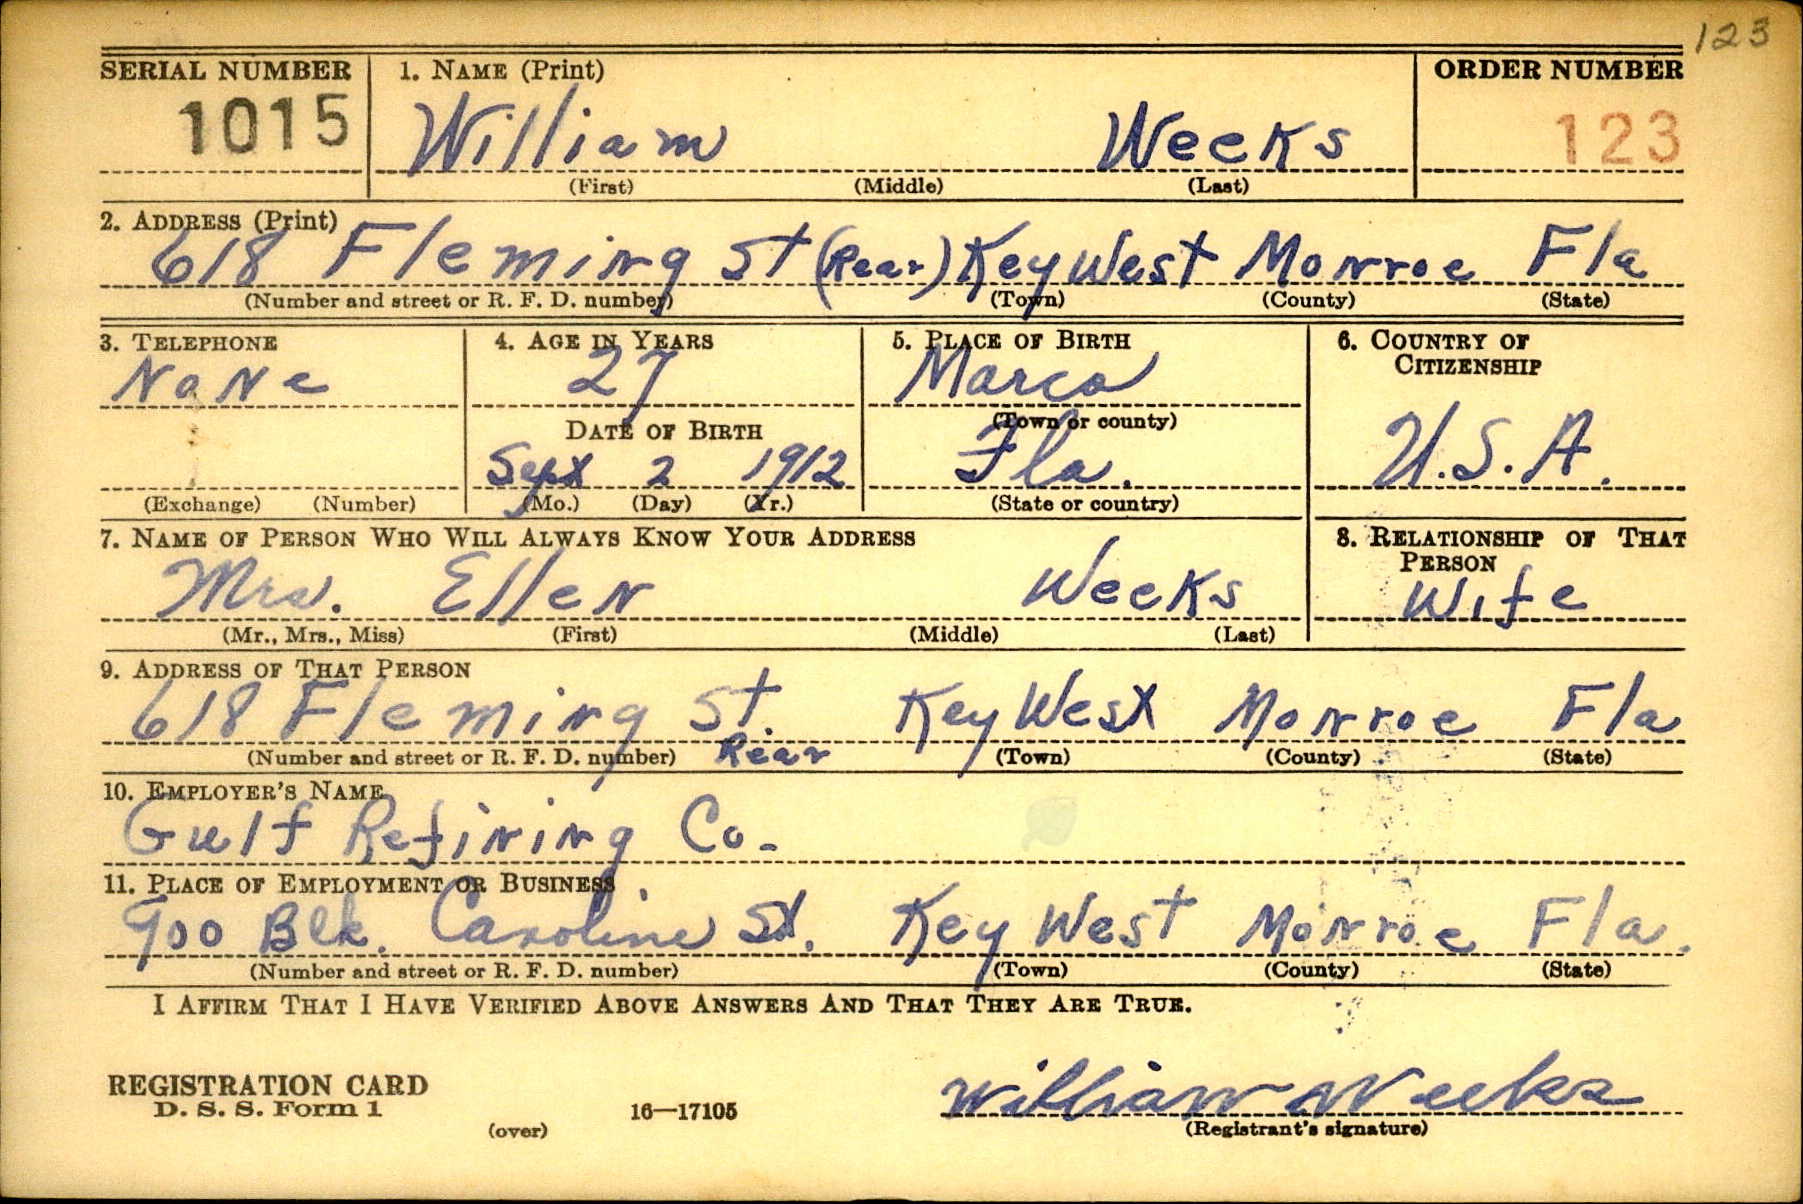 123
SERIAL NUMBER 1. NAME (Print) ORDER NUMBER
1015 William Weeks 123
(First) (Middle) (Last)
2. ADDRESS (Print)
618 Fleming St (Rear) Key West Monroe Fla
(Number and street or R. F. D. number) (Town) (County) (State)
3. TELEPHONE 4. AGE IN YEARS 5. PLACE OF BIRTH 6. COUNTRY OF
CITIZENSHIP
None 27 Marco
(Town or county)
DATE OF BIRTH
Sept 2 1912 Fla. U.S.A.
(Exchange) (Number) (Mo.) (Day) (Yr.) (State or country)
7. NAME OF PERSON WHO WILL ALWAYS KNOW YOUR ADDRESS 8. RELATIONSHIP OF THAT
PERSON
Mrs. Ellen Weeks Wife
(Mr., Mrs., Miss) (First) (Middle) (Last)
9. ADDRESS OF THAT PERSON
618 Fleming St. Key West Monroe Fla
(Number and street or R. F. D. number) Rear (Town) (County) (State)
10. EMPLOYER'S NAME
Gulf Refining Co.
11. PLACE OF EMPLOYMENT OR BUSINESS
900 Blk. Caroline St. Key West Monroe Fla.
(Number and street or R. F. D. number) (Town) (County) (State)
I AFFIRM THAT I HAVE VERIFIED ABOVE ANSWERS AND THAT THEY ARE TRUE.
REGISTRATION CARD
D. S. S. Form 1 16—17105 William Weeks
(over) (Registrant's signature)